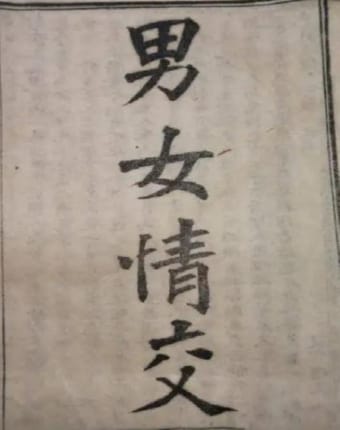 男女情交